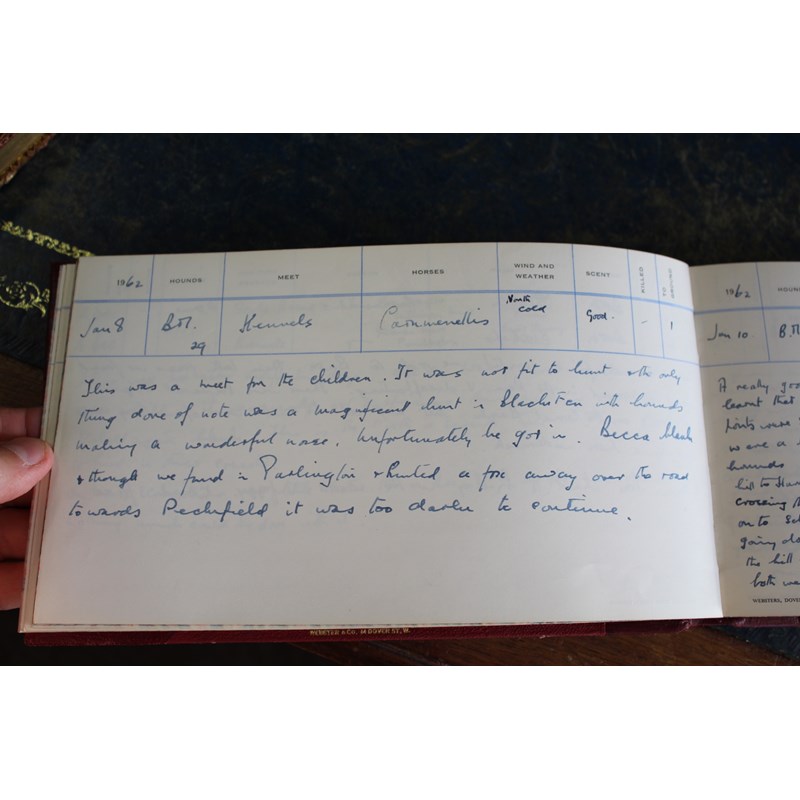 1962 HOUNDS MEET HORSES WIND AND WEATHER SCENT KILLED TO GROUND
Jan 8 B.M. 29 Kennels North cold Good. - 1
This was a meet for the children. It was not fit to hunt & the only
thing done of note was a magnificent hunt in Blackfen with hounds
making a wonderful noise. Unfortunately he got in. Becca blank
& though we found in Parlington & hunted a fox away over the road
towards Peckfield it was too dark to continue.
WEBSTER & CO. 14 DOVER ST., W.
1962
Jan 10 B.M.
A really
learnt that
were
we are a
hounds
hill to
crossing
on to
going
the hill
both
WEBSTERS, DOVER